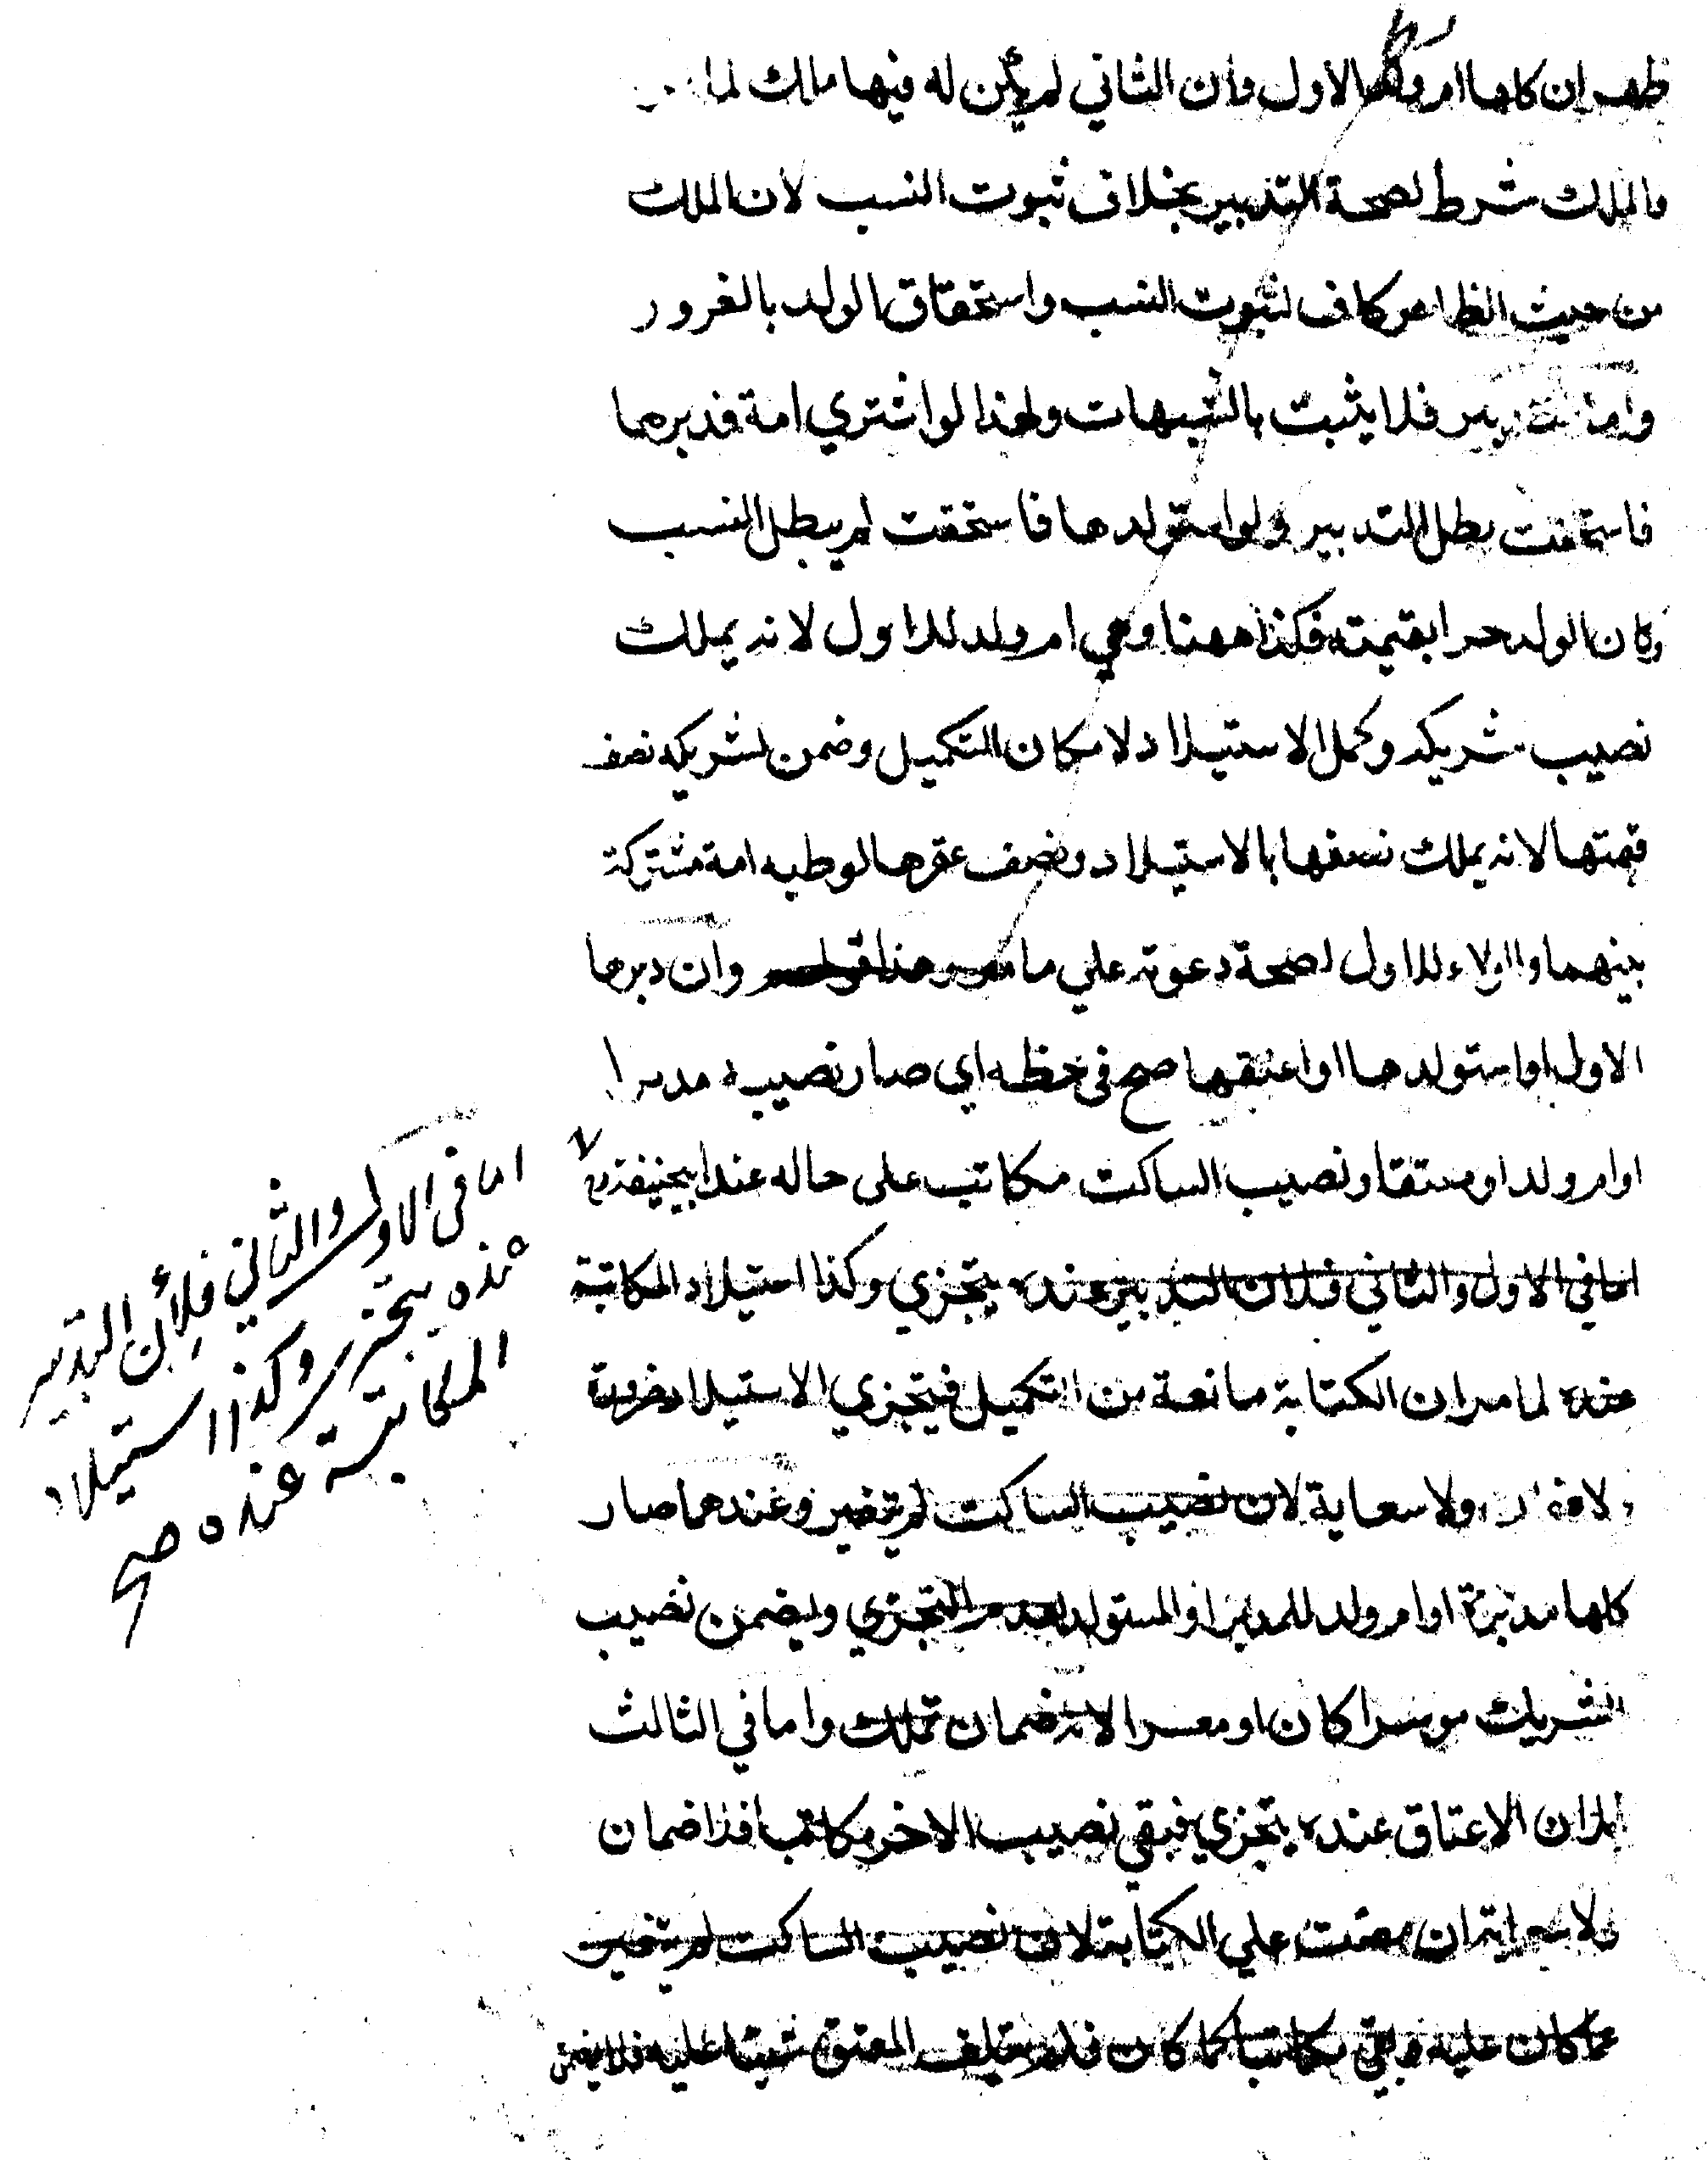 ظهر ان كلها ام ولد الاول وان الثاني لم يكن له فيها ملك لما
والملك شرط لصحة التدبير بخلاف ثبوت النسب لان الملك
من حيث الظاهر كاف لثبوت النسب واستحقاق الولد بالغرور
واما التدبير فلا يثبت بالشبهات ولهذا لو اشتري امة فدبرها
فاستحقت بطل التدبير ولو استولدها فاستحقت لم يبطل النسب
وكان الولد حرا بقيمته فكذا ههنا وهي ام ولد للاول لانه يملك
نصيب شريكه وكمل الاستيلاد لامكان التكميل وضمن لشريكه نصف
قيمتها لانه يملك نصفها بالاستيلاد ونصف عقرها لوطيه امة مشتركة
بينهما والولاء للاول لصحة دعوته علي ما مر وهذا قولهم وان دبرها
الاول او استولدها او اعتقها صح في حظه اي صار نصيبه مدبرا
او ام ولد او معتقا ونصيب الساكت مكاتب على حاله عند ابيحنيفة رح
اما في الاول والثاني فلان التدبير عنده يتجزي وكذا استيلاد المكاتبة
عنده لما مر ان الكتابة مانعة من التكميل فيتجزي الاستيلاد ضرورة
ولا ضمان ولا سعاية لان نصيب الساكت لم يتغير وعندهما صار
كلها مدبرة او ام ولد للمدبر او المستولد لعدم التجزي ويضمن نصيب
الشريك موسرا كان او معسرا لانه ضمان تملك واما في الثالث
فلان الاعتاق عنده يتجزي فبقي نصيب الاخر مكاتبا فلا ضمان
ولا سعاية ان مضت علي الكتابة لان نصيب الساكت لم يتغير
عما كان عليه فبقي مكاتبا كما كان فلم يتلف المعتق شيئا عليه فلا يضمن
اما في الاول والثاني فلان التدبير
عنده يتجزى وكذا استيلاد
المكاتبة عنده صح